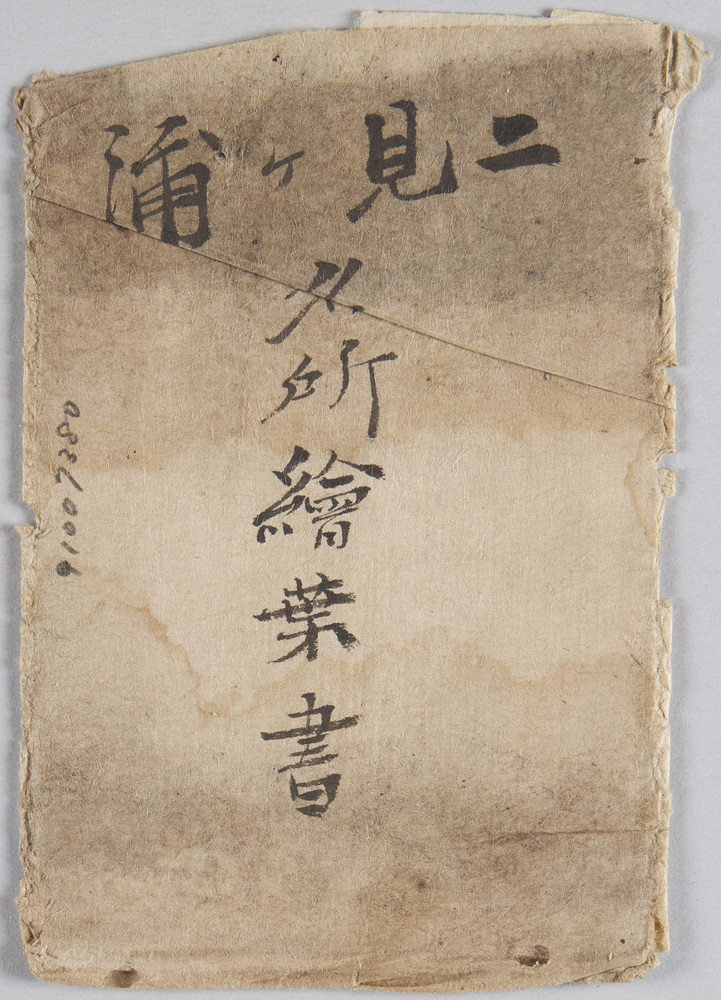 二見ヶ浦
名所繪葉書
91007380